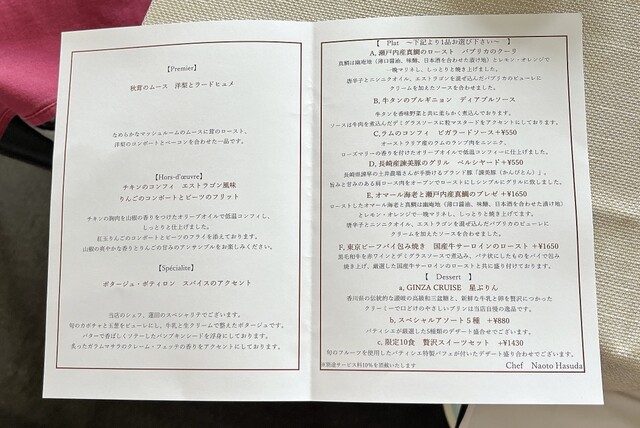 【Premier】
秋茸のムース　洋梨とラードヒュメ
なめらかなマッシュルームのムースに茸のロースト、
洋梨のコンポートとベーコンを合わせた一品です。
【Hors-d'œuvre】
チキンのコンフィ　エストラゴン風味
りんごのコンポートとビーツのフリット
チキンの胸肉を山椒の香りをつけたオリーブオイルで低温コンフィし、
しっとりと仕上げました。
紅玉りんごのコンポートとビーツのフライを添えております。
山椒の爽やかな香りとりんごの旨みのアンサンブルをお楽しみください。
【Spécialité】
ポタージュ・ポティロン　スパイスのアクセント
当店のシェフ、蓮田のスペシャリテでございます。
旬のカボチャと玉葱をピューレにし、牛乳と生クリームで整えたポタージュです。
バターで香ばしくソテーしたパンプキンシードを浮身にしております。
炙ったガラムマサラのクレーム・フェッテの香りをアクセントにしております。
【　Plat　～下記より1品お選び下さい～　】
A, 瀬戸内産真鯛のロースト　パプリカのクーリ
真鯛は幽庵地（薄口醤油、味醂、日本酒を合わせた漬け地）とレモン・オレンジで
一晩マリネし、しっとりと焼き上げました。
唐辛子とニンニクオイル、エストラゴンを混ぜ込んだパプリカのピューレに
クリームを加えたソースを合わせました。
B, 牛タンのブルギニョン　ディアブルソース
牛タンを香味野菜と共に柔らかく煮込んでおります。
ソースは牛肉を煮込んだデミグラスソースに粒マスタードをアクセントにしております。
C,ラムのコンフィ　ビガラードソース +¥550
オーストラリア産ラムのランプ肉をニンニク、
ローズマリーの香りを付けたオリーブオイルで低温コンフィーに仕上げました。
D, 長崎産諫美豚のグリル　ペルシヤード+¥550
長崎県諫早の土井農場さんが手掛けるブランド豚「諫美豚（かんびとん）」。
旨みと甘みのある肩ロース肉をオーブンでローストにしシンプルにグリルに致しました。
E, オマール海老と瀬戸内産真鯛のブレゼ +¥1650
ローストしたオマール海老と真鯛は幽庵地（薄口醤油、味醂、日本酒を合わせた漬け地）
とレモン・オレンジで一晩マリネし、しっとりと焼き上げてます。
唐辛子とニンニクオイル、エストラゴンを混ぜ込んだパプリカのピューレに
クリームを加えたソースを合わせました。
F, 東京ビーフパイ包み焼き　国産牛サーロインのロースト +¥1650
黒毛和牛を赤ワインとデミグラスソースで煮込み、パテ状にしたものをパイで包み
焼き上げ、厳選した国産牛サーロインのローストと共に盛り付けております。
【　Dessert　】
a, GINZA CRUISE　星ぷりん
香川県の伝統的な讃岐の高級和三盆糖と、新鮮な牛乳と卵を贅沢につかった
クリーミーで口どけのやさしいプリンは当店自慢の逸品です。
b, スペシャルアソート５種　+¥880
パティシエが厳選した5種類のデザート盛合せでございます。
c, 限定10食　贅沢スイーツセット　+¥1430
旬のフルーツを使用したパティシエ特製パフェが付いたデザート盛り合わせでございます。
※別途サービス料10%を頂戴いたします
Chef　Naoto Hasuda